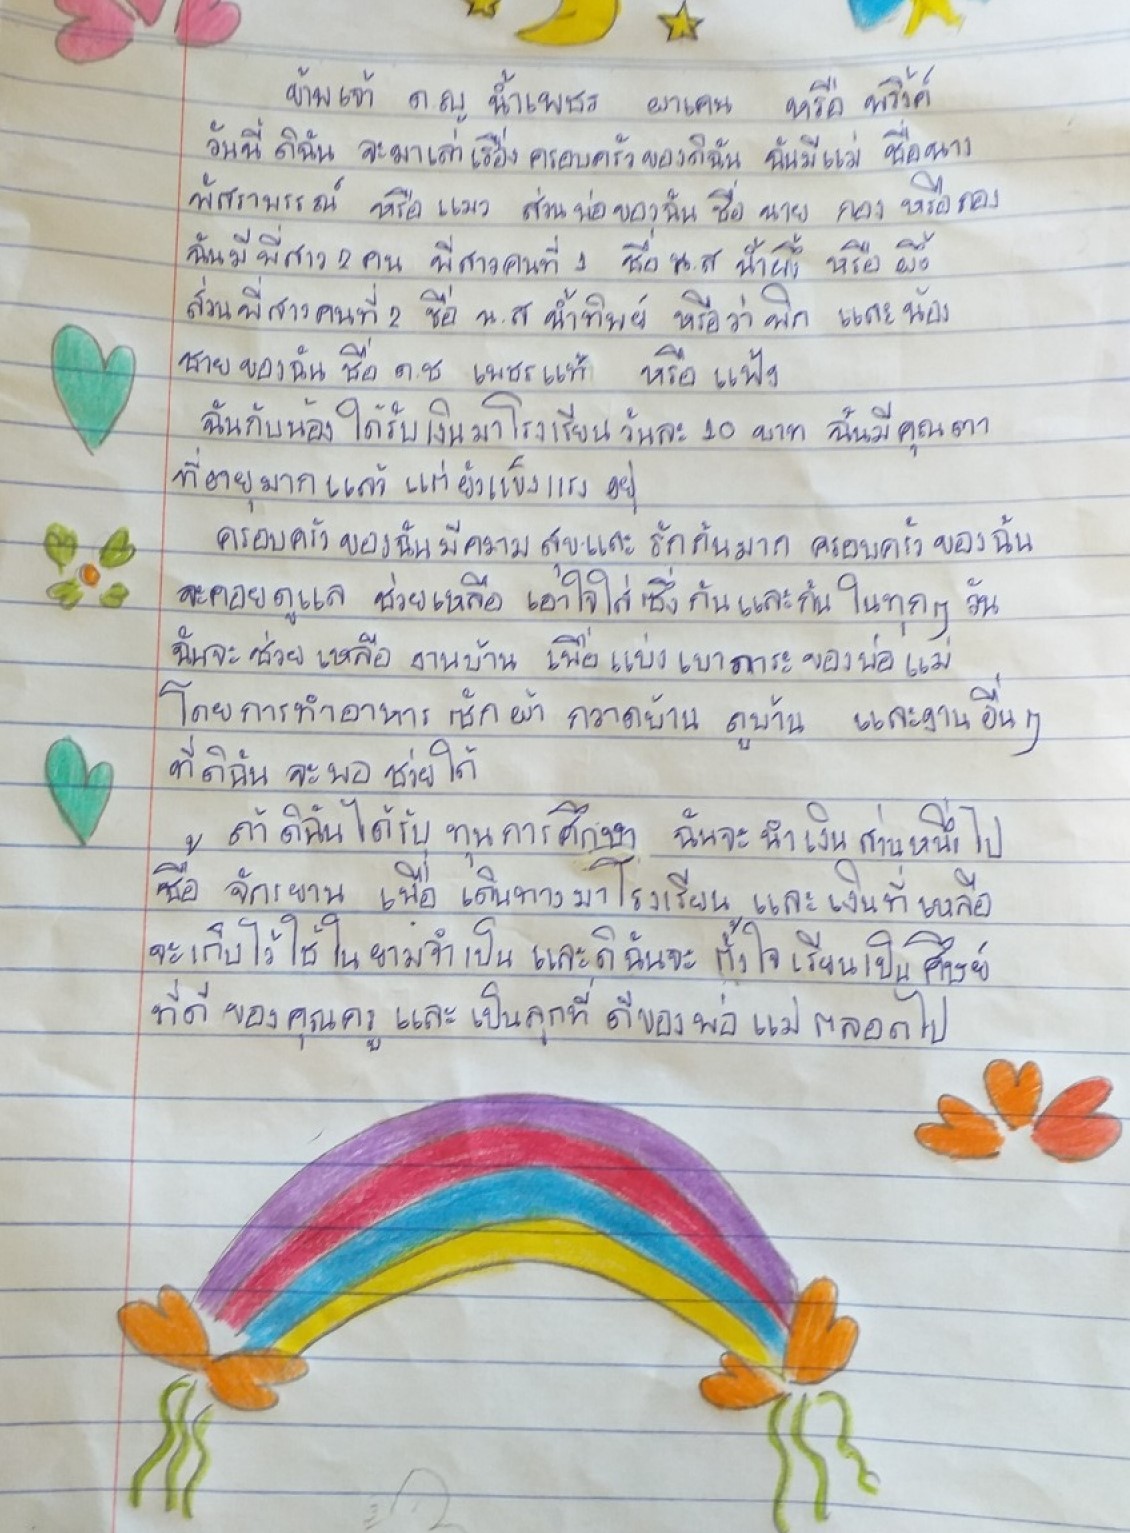 ข้าพเจ้า ด.ญ น้ำเพชร ผาเคน หรือ พริ้งค์
วันนี้ ดิฉัน จะมาเล่าเรื่อง ครอบครัวของดิฉัน ฉันมีแม่ ชื่อนาง
พัสราพรรณ์ หรือ แมว ส่วนพ่อของฉัน ชื่อ นาย กอง หรือกอง
ฉันมี พี่สาว 2 คน พี่สาวคนที่ 1 ชื่อ น.ส น้ำผึ้ง หรือ ผึ้ง
ส่วนพี่สาวคนที่ 2 ชื่อ น.ส น้ำทิพย์ หรือว่า พิก และน้อง
ชายของฉัน ชื่อ ด.ช เพชรแท้ หรือ แฟ้ง
ฉันกับน้อง ได้รับเงินมาโรงเรียนวันละ 10 บาท ฉันมีคุณตา
ที่อายุมากแล้ว แต่ยังแข็งแรง อยู่
ครอบครัว ของฉันมีความ สุขและ รักกันมาก ครอบครัวของฉัน
จะคอยดูแล ช่วยเหลือ เอาใจใส่ซึ่งกันและกัน ในทุกๆ วัน
ฉันจะช่วยเหลือ งานบ้าน เพื่อแบ่งเบาภาระของพ่อแม่
โดยการทำอาหาร ซักผ้า กวาดบ้าน ถูบ้าน และงานอื่นๆ
ที่ดิฉัน จะพอ ช่วยได้
ถ้า ดิฉันได้รับ ทุนการศึกษา ฉันจะนำเงินส่วนหนึ่งไป
ซื้อ จักรยาน เพื่อ เดินทางมาโรงเรียน และเงินที่เหลือ
จะเก็บไว้ใช้ในยามจำเป็น และดิฉันจะ ตั้งใจเรียนเป็นศิษย์
ที่ดี ของคุณครู และ เป็นลูกที่ ดีของพ่อ แม่ ตลอดไป